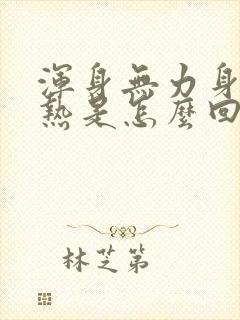 渾身無力身
熱是怎麼回
林芝第